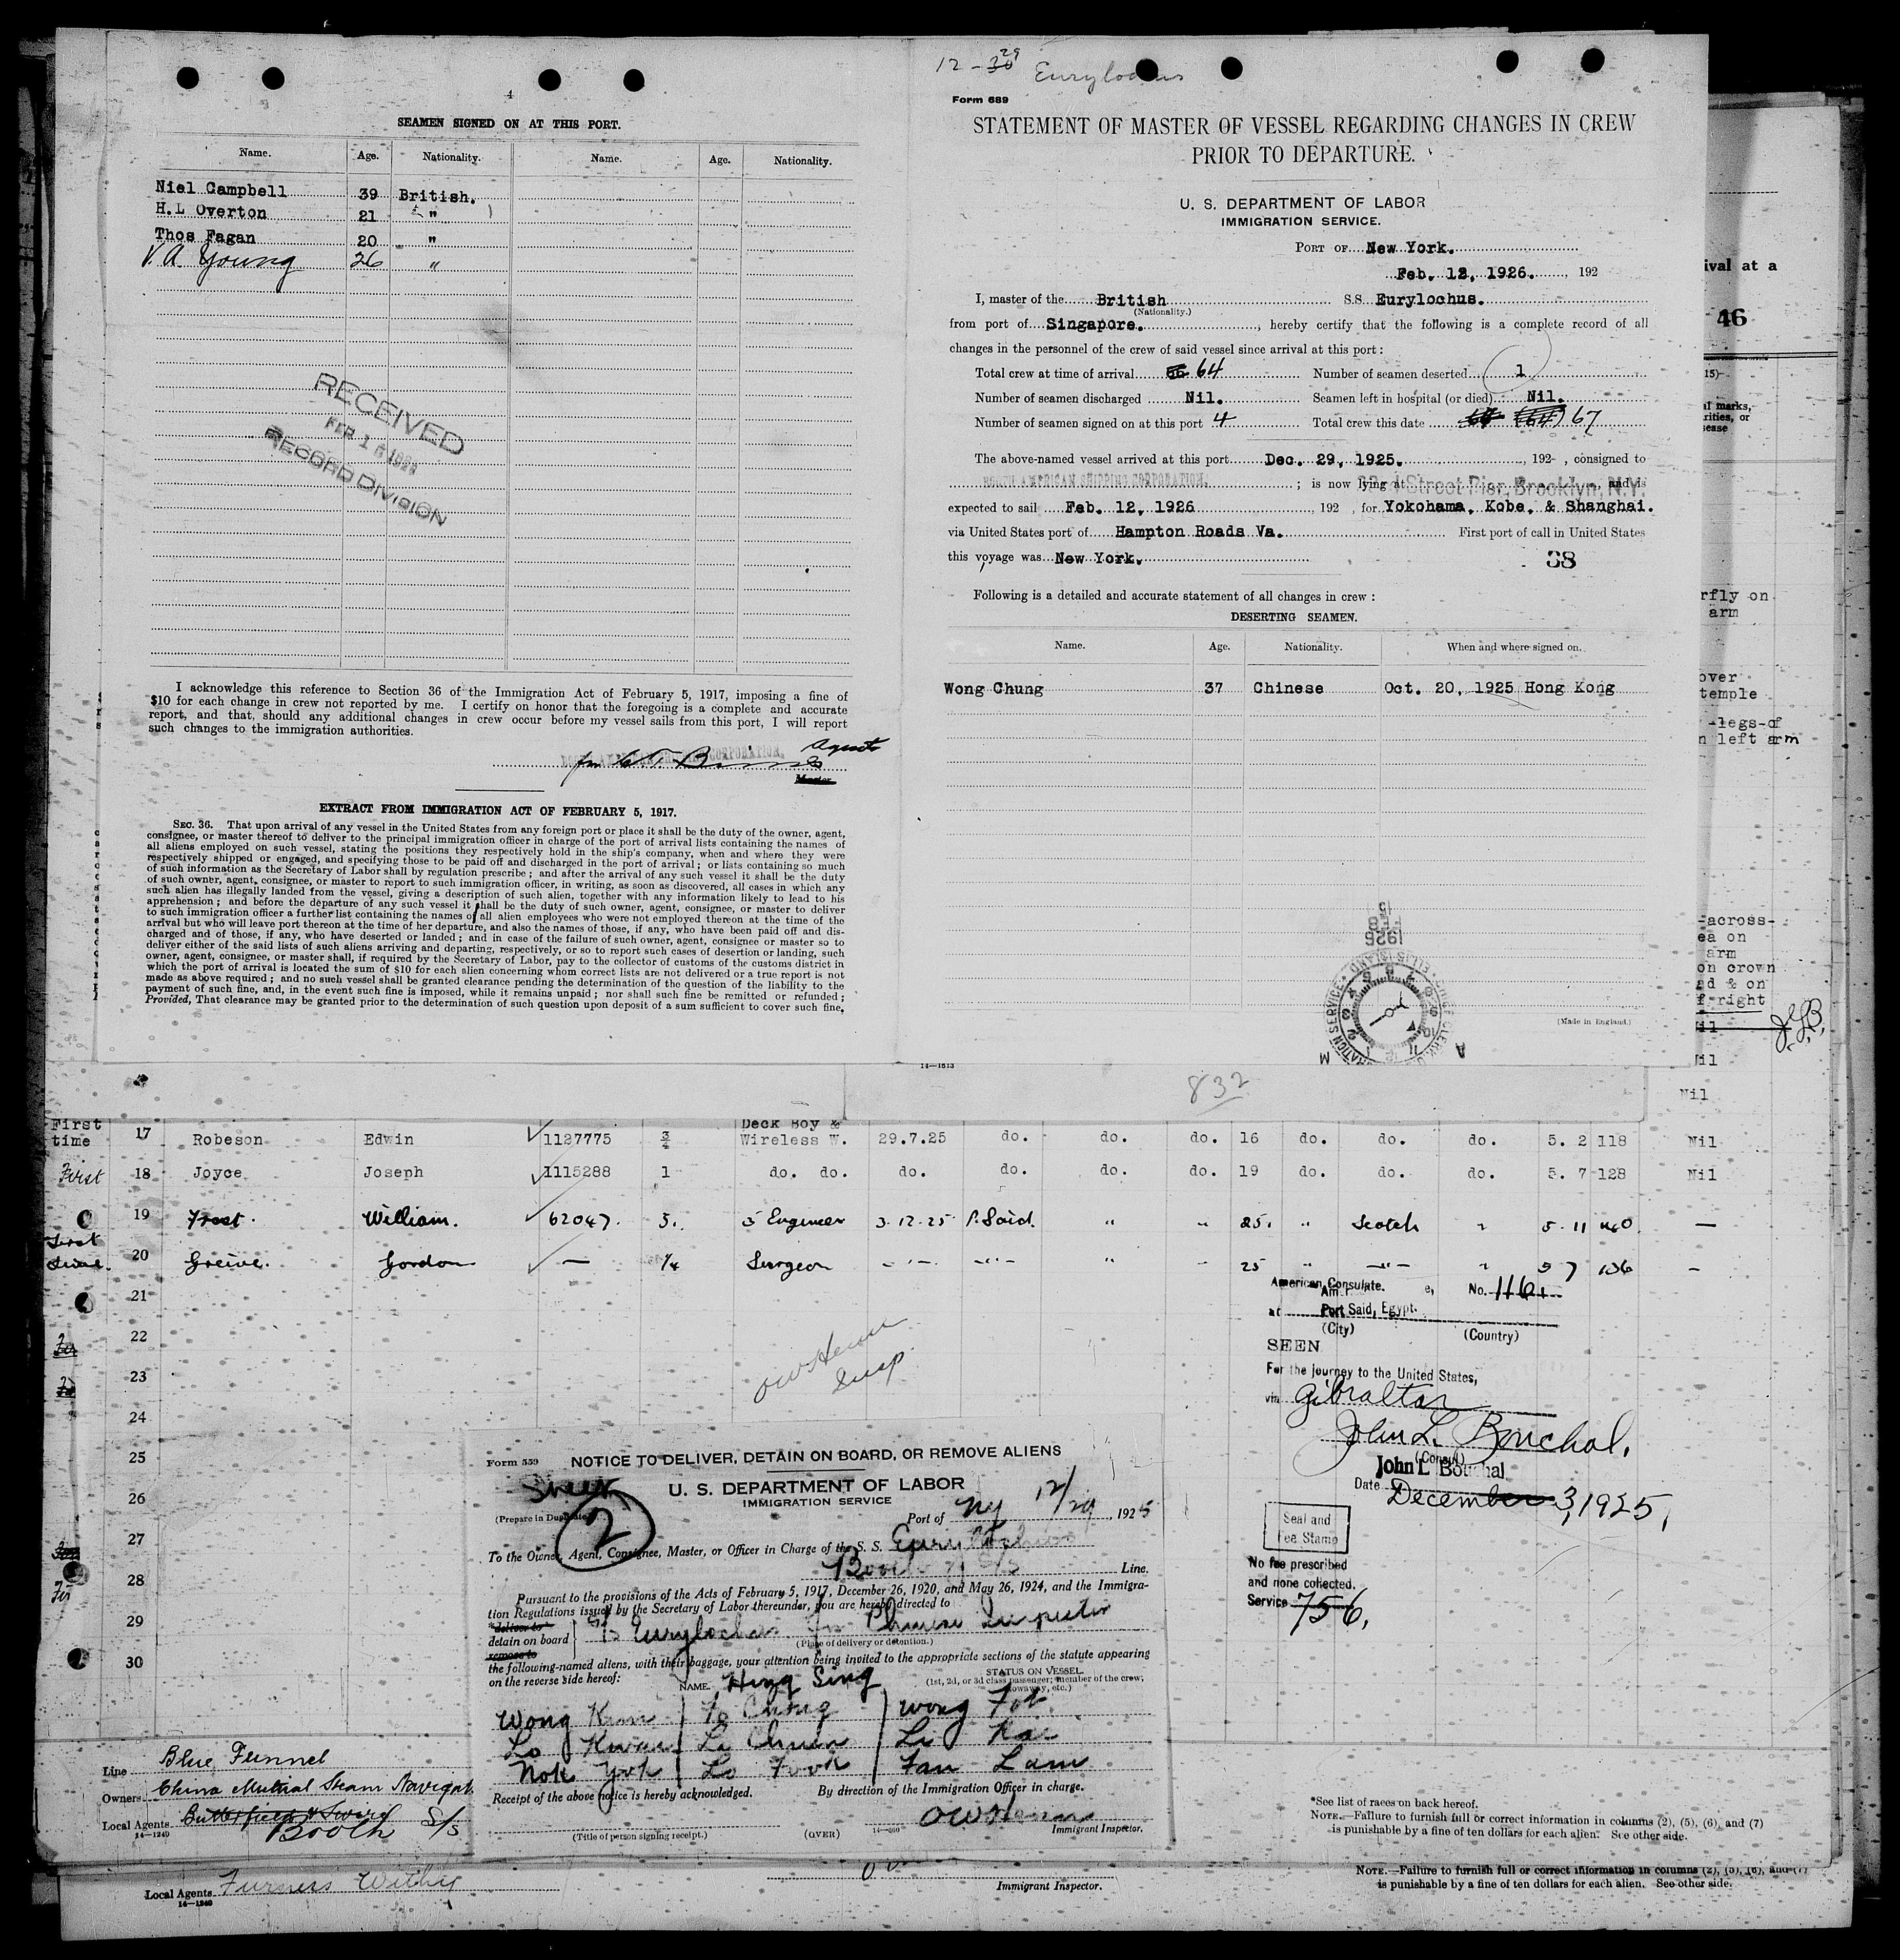 4
SEAMEN SIGNED ON AT THIS PORT.
Name. Age. Nationality. Name. Age. Nationality.
Niel Campbell 39 British.
H.L Overton 21 "
Thos Fagan 20 "
V. A. Young 26 "
RECEIVED
FEB 1
RECORD DIVISION
I acknowledge this reference to Section 36 of the Immigration Act of February 5, 1917, imposing a fine of
$10 for each change in crew not reported by me. I certify on honor that the foregoing is a complete and accurate
report, and that, should any additional changes in crew occur before my vessel sails from this port, I will report
such changes to the immigration authorities.
CORPORATION, Agents
for
Master
EXTRACT FROM IMMIGRATION ACT OF FEBRUARY 5, 1917.
SEC. 36. That upon arrival of any vessel in the United States from any foreign port or place it shall be the duty of the owner, agent,
consignee, or master thereof to deliver to the principal immigration officer in charge of the port of arrival lists containing the names of
all aliens employed on such vessel, stating the positions they respectively hold in the ship's company, when and where they were
respectively shipped or engaged, and specifying those to be paid off and discharged in the port of arrival; or lists containing so much
of such information as the Secretary of Labor shall by regulation prescribe; and after the arrival of any such vessel it shall be the duty
of such owner, agent, consignee, or master to report to such immigration officer, in writing, as soon as discovered, all cases in which any
such alien has illegally landed from the vessel, giving a description of such alien, together with any information likely to lead to his
apprehension; and before the departure of any such vessel it shall be the duty of such owner, agent, consignee, or master to deliver
to such immigration officer a further list containing the names of all alien employees who were not employed thereon at the time of the
arrival but who will leave port thereon at the time of her departure, and also the names of those, if any, who have been paid off and dis-
charged and of those, if any, who have deserted or landed; and in case of the failure of such owner, agent, consignee or master so to
deliver either of the said lists of such aliens arriving and departing, respectively, or so to report such cases of desertion or landing, such
owner, agent, consignee, or master shall, if required by the Secretary of Labor, pay to the collector of customs of the customs district in
which the port of arrival is located the sum of $10 for each alien concerning whom correct lists are not delivered or a true report is not
made as above required; and no such vessel shall be granted clearance pending the determination of the question of the liability to the
payment of such fine, and, in the event such fine is imposed, while it remains unpaid; nor shall such fine be remitted or refunded;
Provided, That clearance may be granted prior to the determination of such question upon deposit of a sum sufficient to cover such fine,
12-30 29 Eurylochus
Form 689
STATEMENT OF MASTER OF VESSEL REGARDING CHANGES IN CREW
PRIOR TO DEPARTURE.
U. S. DEPARTMENT OF LABOR
IMMIGRATION SERVICE.
PORT OF New York.
Feb. 12, 1926. , 192
I, master of the British S.S. Eurylochus.
(Nationality.)
from port of Singapore. , hereby certify that the following is a complete record of all
changes in the personnel of the crew of said vessel since arrival at this port:
Total crew at time of arrival 64 Number of seamen deserted 1
Number of seamen discharged Nil. Seamen left in hospital (or died) Nil.
Number of seamen signed on at this port 4 Total crew this date 67
The above-named vessel arrived at this port Dec. 29, 1925. , 192- , consigned to
NORTH AMERICAN SHIPPING CORPORATION. ; is now lying at Street Pier, Brooklyn, N.Y. , and is
expected to sail Feb. 12, 1926 192 , for Yokohama, Kobe, & Shanghai.
via United States port of Hampton Roads Va. First port of call in United States
this voyage was New York.
38
Following is a detailed and accurate statement of all changes in crew:
DESERTING SEAMEN.
Name. Age. Nationality. When and where signed on.
Wong Chung 37 Chinese Oct. 20, 1925 Hong Kong
15
FEB
1926
(Made in England.)
14-1513
832
ival at a
46
15)
al marks,
rities, or
sease
rfly on
arm
over
temple
-legs-of
n left arm
-across-
ea on
arm
on crown
nd & on
f-right
Nil
Nil
Nil
First time 17 Robeson Edwin 1127775 3/4 Deck Boy & Wireless W. 29.7.25 do. do. do. 16 do. do. do. 5. 2 118 Nil
First 18 Joyce Joseph 1115288 1 do. do. do. do. do. do. 19 do. do. do. 5. 7 128 Nil
19 Frost. William. 62047. 3. 5 Engineer 3.12.25 P. Said. " " 25. " Scotch " 5. 11 140. —
First time. 20 Greive. Gordon — 1/4 Surgeon —"— —"— " 25 " —"— " 5 7 136 —
21
22
23
24
25
26
27
28
29
30
American Consulate. No. 116.
at Port Said, Egypt.
(City) (Country)
SEEN
For the journey to the United States,
via Gibraltar
John L. Bouchal.
(Consul)
John L Bouchal
Date December 3, 1925.
Seal and
Fee Stamp
No fee prescribed
and none collected.
Service 756.
Form 559 NOTICE TO DELIVER, DETAIN ON BOARD, OR REMOVE ALIENS
U. S. DEPARTMENT OF LABOR
IMMIGRATION SERVICE
(Prepare in Duplicate)
2
Port of NY 12/29, 1925
To the Owner, Agent, Consignee, Master, or Officer in Charge of the S. S. Eurylochus
Booth S/S Line.
Pursuant to the provisions of the Acts of February 5, 1917, December 26, 1920, and May 26, 1924, and the Immigra-
tion Regulations issued by the Secretary of Labor thereunder, you are hereby directed to
*deliver to
detain on board
remove to
Eurylochus for Chinese Inspector
(Place of delivery or detention.)
the following-named aliens, with their baggage, your attention being invited to the appropriate sections of the statute appearing
on the reverse side hereof:
NAME. Hing Sing
STATUS ON VESSEL
(1st, 2d, or 3d class passenger, member of the crew,
stowaway, etc.)
Wong Kum Fo Chong Wong Fot
Lo Kwan Li Chuen Li Kai
Nok Yok Lo Fook Fan Lam
Receipt of the above notice is hereby acknowledged. By direction of the Immigration Officer in charge.
(Title of person signing receipt.) (OVER) Immigrant Inspector.
Line Blue Funnel
Owners China Mutual Steam Navigat
Local Agents Butterfield & Swire
14-1240
Booth S/S
*See list of races on back hereof.
NOTE.—Failure to furnish full or correct information in columns (2), (5), (6), and (7)
is punishable by a fine of ten dollars for each alien. See other side.
Local Agents Furness Withy
14-1240
Immigrant Inspector.
NOTE.—Failure to furnish full or correct information in columns (2), (5), (6), and (7)
is punishable by a fine of ten dollars for each alien. See other side.